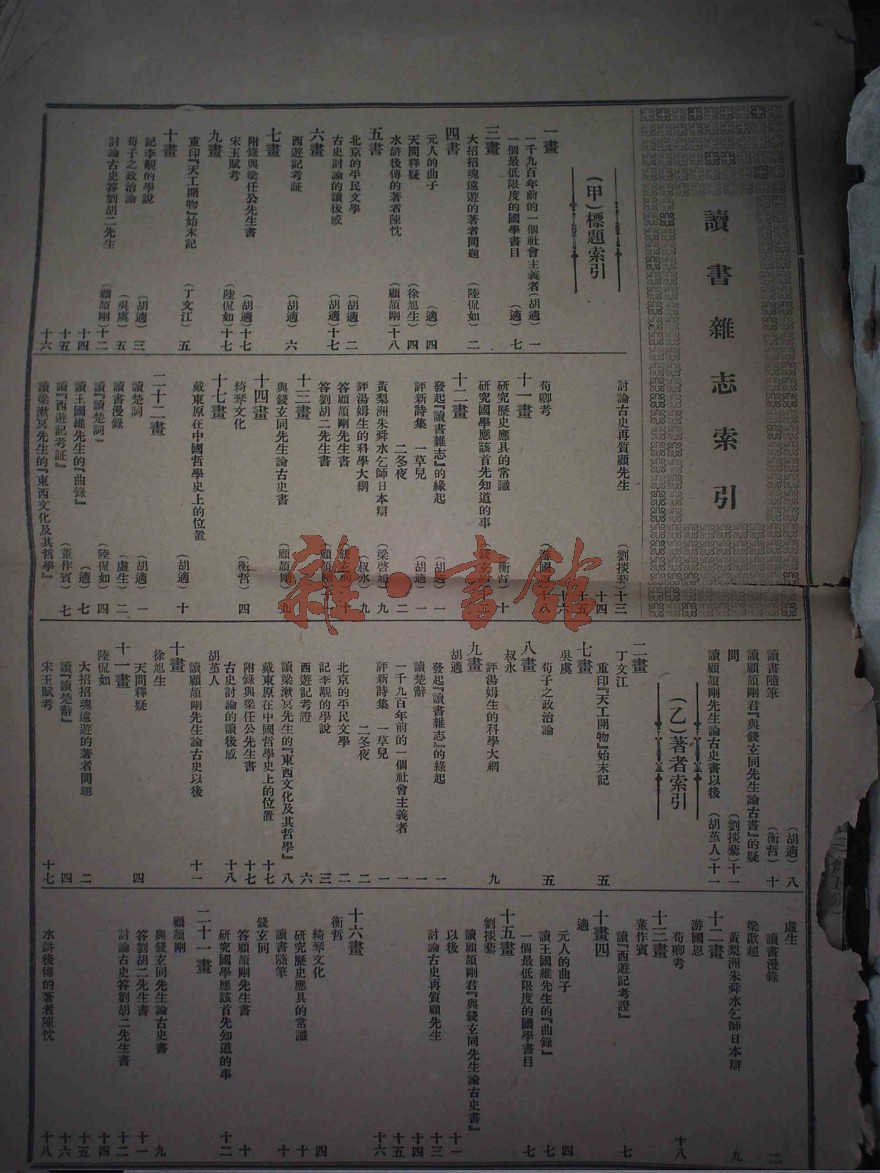 讀書雜志索引
(甲)標題索引
一畫
一千九百年前的一個社會主義者(胡適)一
一個最低限度的國學書目 (適)七
三畫
大招招魂遠遊的著者問題 (陸侃如)二
四書
元人的曲子 (適)四
天問釋疑 (徐旭生)四
水滸後傳的著者陳忱 (顧頡剛)十八
五書
北京的平民文學 (胡適)二
古史討論的讀後感 (胡適)十七
六畫
西遊記考証 (胡適)六
七畫
附錄與梁任公先生書 (胡適)十七
宋玉賦考 (陸侃如)十七
九畫
重印『天工開物』始末記 (丁文江)五
十畫
記李覯的學說 (胡適)三
荀子之政治論 (吳虞)五
討論古史答劉胡二先生 (顧頡剛)十二
十四
十五
十六
討論古史再質顧先生 (劉掞藜)十三
十四
十五
十六
荀卿考 (游國恩)八
十一畫
研究歷史應具的常識 (衡哲)十
研究國學應該首先知道的事 (錢玄同)
十二畫
發起『讀書雜志』的緣起 (胡適)一
評新詩集 一草兒 (胡適)一
二冬夜 二
黃梨洲朱舜水乞師日本辯 (梁啓超)九
評湯姆生的科學大綱 (叔永)九
答顧頡剛先生書 (錢玄同)十
答劉胡二先生書 (顧頡剛)
十三畫
與錢玄同先生論古史書 (顧頡剛)九
十四畫
綺琴文化 (衡哲)四
十七畫
戴東原在中國哲學史上的位置 (胡適)十
二十二畫
讀楚詞 (胡適)一
讀書漫錄 (盧生)二
讀『讀楚詞』 (陸侃如)四
讀王國維先生的『曲錄』 (適)七
讀『西遊記考証』 (董作賓)七
讀梁漱冥先生的『東西文化及其哲學』
(胡適)八
讀書隨筆 (衡哲)十
讀顧頡剛君『與錢玄同先生論古書』的疑
問 (劉掞藜)十一
讀顧頡剛先生論古史書以後 (胡堇人)十一
(乙)著者索引
二畫
丁文江
重印『天工開物』始末記 五
七畫
吳虞
荀子之政治論 五
八畫
叔永
評湯姆生的科學大綱 九
九畫
胡適
發起『讀書雜志』的緣起 一
讀楚辭 一
一千九百年前的一個社會主義者 一
評新詩集 一草兒 一
二冬夜 二
北京的平民文學 二
記李覯的學說 三
西遊記考證 六
讀梁漱冥先生的『東西文化及其哲學』 八
戴東原在中國哲學史上的位置 十
附錄與梁任公先生書 十七
古史討論的讀後感 十八
胡堇人
讀顧頡剛先生論古史以後 十一
十畫
徐旭生
天問釋疑 四
十一畫
陸侃如
大招招魂遠遊的著者問題 二
讀『讀楚辭』 四
宋玉賦考 十七
盧生
讀書漫錄 二
梁啟超
黃梨洲朱舜水乞師日本辯 九
十二畫
游國恩
荀卿考 十八
十三畫
董作賓
讀『西遊記考證』 七
十畫四
適
元人的曲子 四
讀王國維先生的『曲錄』 七
一個最低限度的國學書目 七
十五畫
劉掞藜
讀顧頡剛君『與錢玄同先生論古史書』
以後 十一
討論古史再質顧先生 十三
十四
十五
十六
十六畫
衡哲
綺琴文化 四
研究歷史應具的常識 十
讀書隨筆 十
錢玄同
答顧頡剛先生書 十
研究國學應該首先知道的事 十二
二十一畫
顧頡剛
與錢玄同先生論古史書 九
答劉胡二先生書 十一
討論古史答劉胡二先生書 十二
十四
十五
十六
水滸後傳的著者陳忱 十八
雜·書館